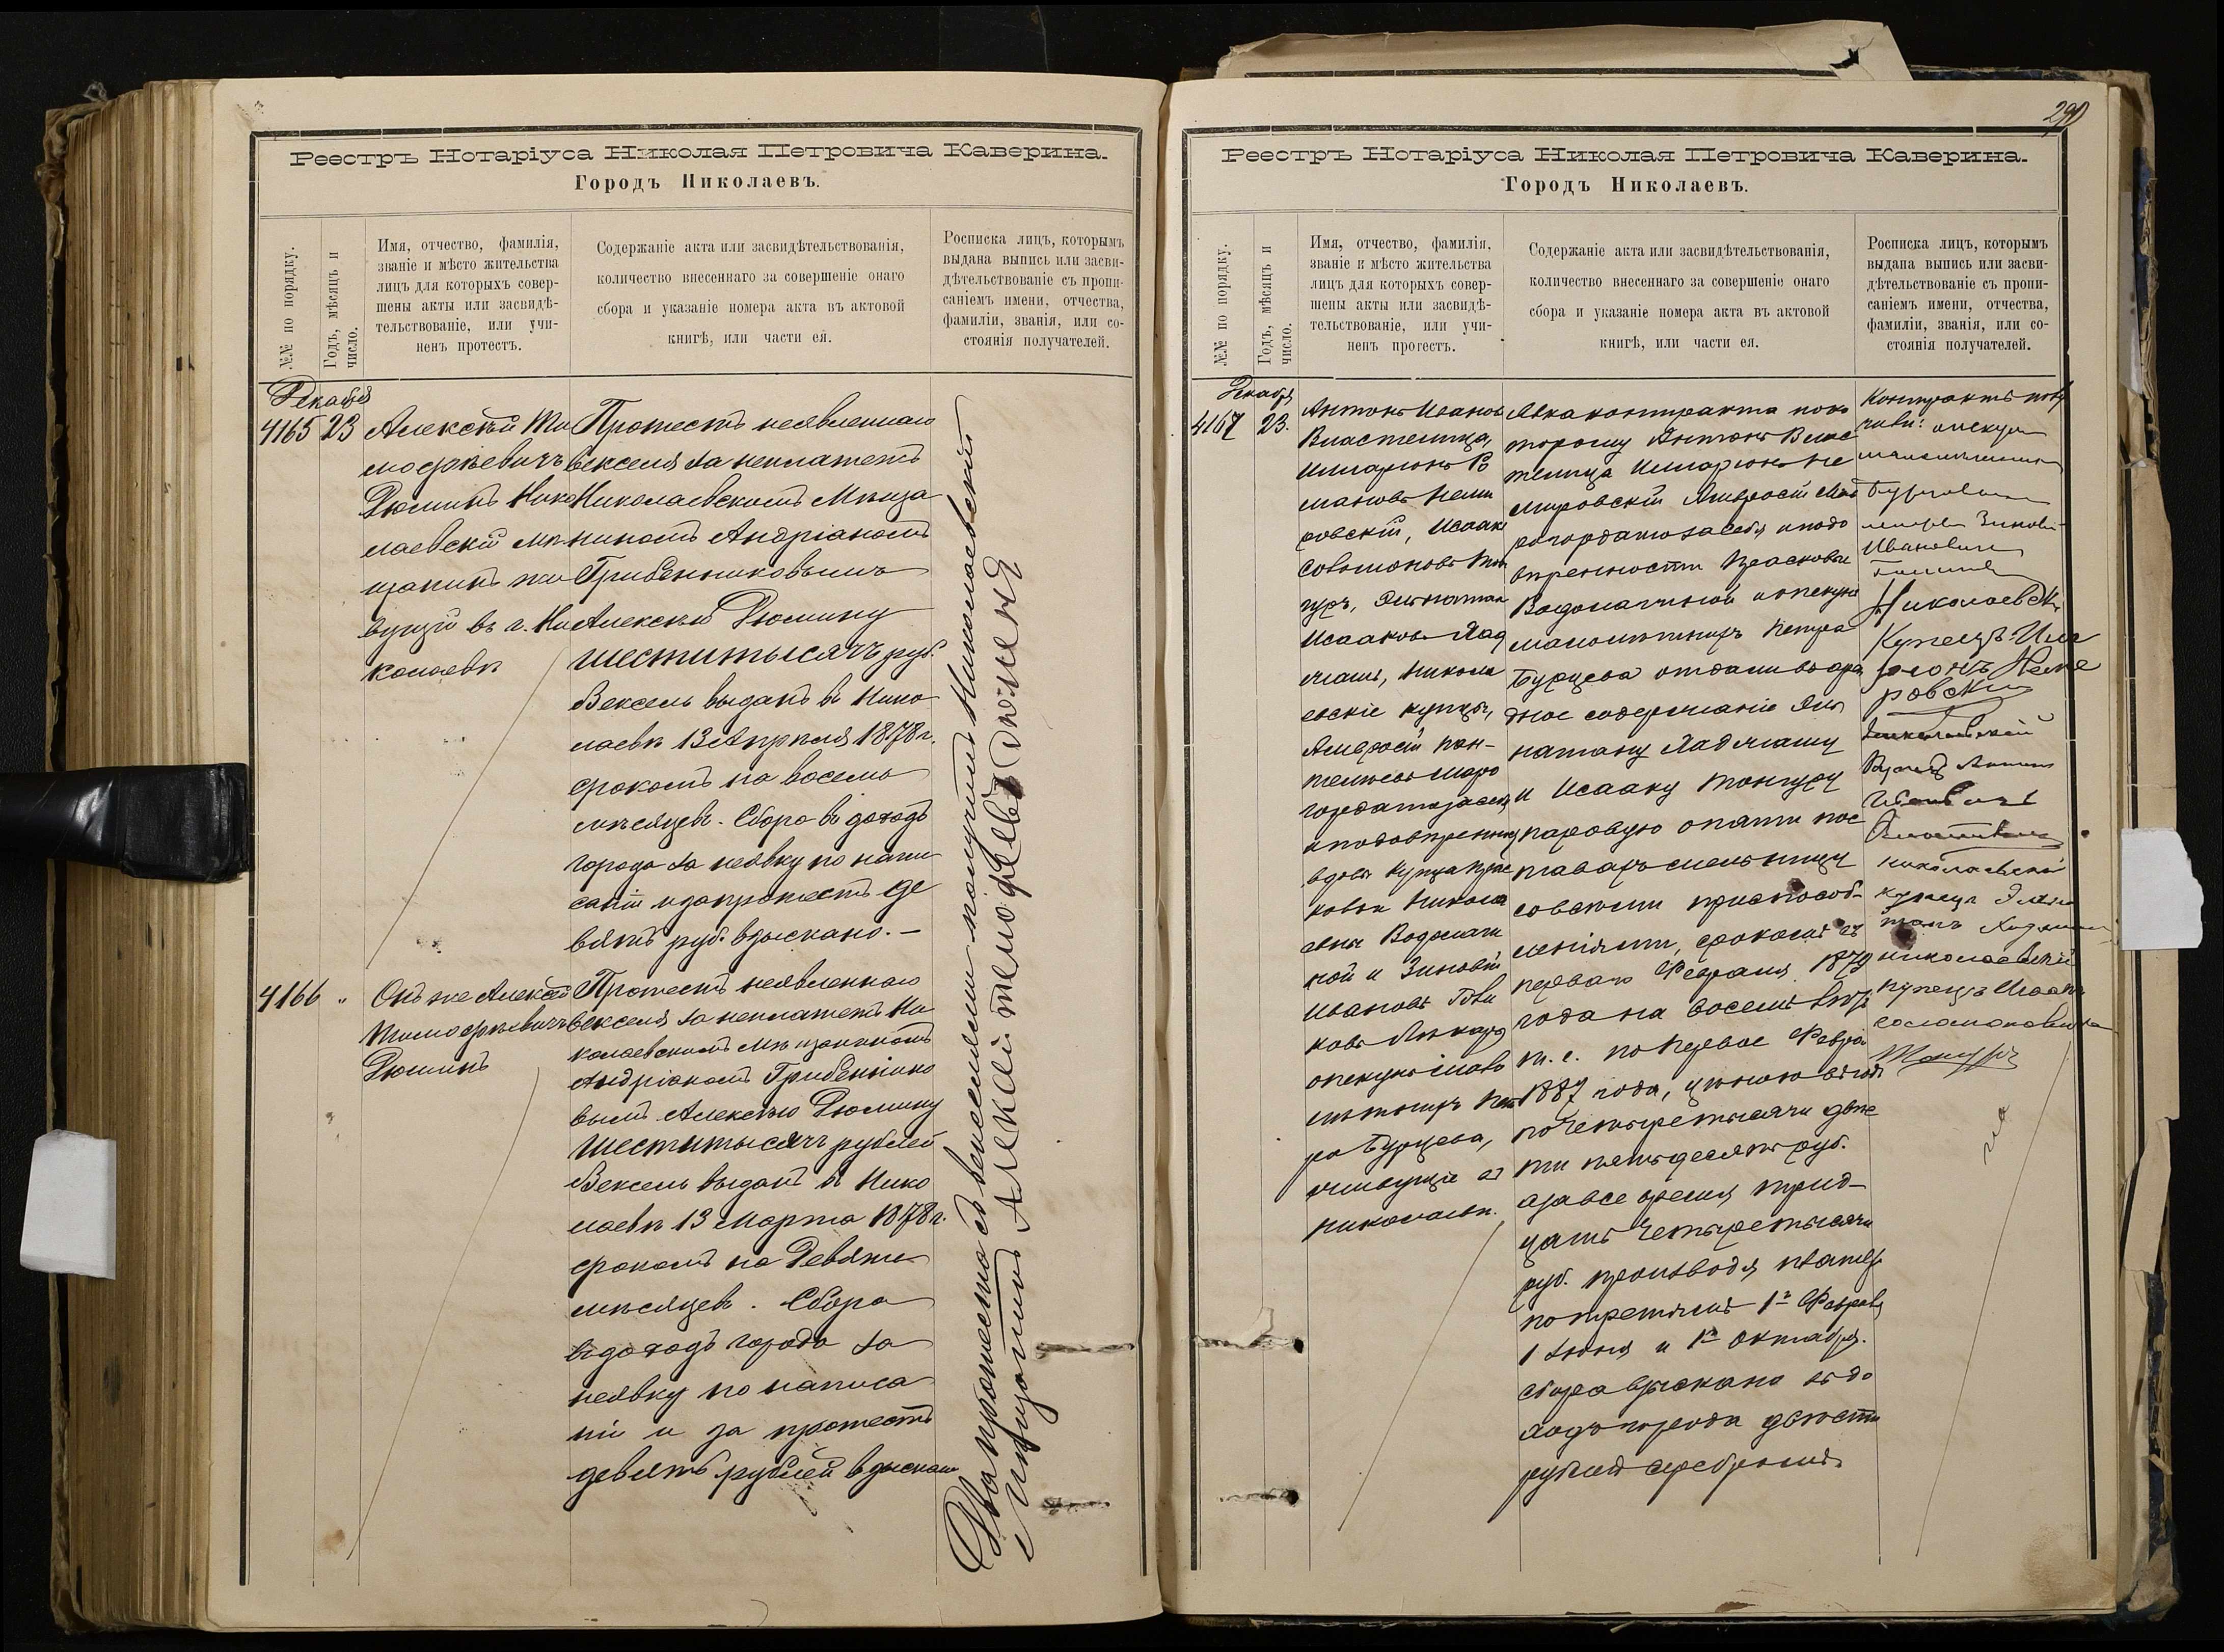 Реестръ Нотаріуса Николая Петровича Каверина.
Городъ Николаевъ.
№№ по порядку.
Годъ, мѣсяцъ и
число.
Имя, отчество, фамилія,
званіе и мѣсто жительства
лицъ для которыхъ совер-
шены акты или засвидѣ-
тельствованіе, или учи-
ненъ протестъ.
Содержаніе акта или засвидѣтельствованія,
количество внесеннаго за совершеніе онаго
сбора и указаніе номера акта въ актовой
книгѣ, или части ея.
Росписка лицъ, которымъ
выдана выпись или засви-
дѣтельствованіе съ пропи-
саніемъ имени, отчества,
фамиліи, званія, или со-
стоянія получателей.
Декабря
4165 23
Алексѣй Ти
мофѣевичъ
Дюминъ Нико
лаевскій мѣ
щанинъ жи
вущій въ г. Ни
колаевѣ
Протестъ неявленнаго
векселя за неплатежъ
Николаевскимъ Мѣща
ниномъ Андріаномъ
Гребенниковымъ
Алексѣю Дюмину
шести тысячъ руб.
Вексель выданъ въ Нико
лаевѣ 13 Апрѣля 1878 г.
срокомъ на восемь
мѣсяцевъ. Сбора въ доходъ
города за неявку по напи
саніи и за протестъ де
вять руб. взыскано. —
4166 "
Онъ же Алексѣй
Тимофѣевичъ
Дюминъ
Протестъ неявленнаго
векселя за неплатежъ Ни
колаевскимъ Мѣщаниномъ
Андріаномъ Гребеннико
вымъ Алексѣю Дюмину
шести тысячъ рублей
Вексель выданъ въ Нико
лаевѣ 13 Марта 1878 г.
срокомъ на Девять
мѣсяцевъ. Сбора
въ доходъ города за
неявку по написа
ніи и за протестъ
девять рублей взыскано
Два протеста съ векселями получилъ Николаевскій
Мѣщанинъ Алексѣй Тимофѣевъ Дюминъ
290
Реестръ Нотаріуса Николая Петровича Каверина.
Городъ Николаевъ.
№№ по порядку.
Годъ, мѣсяцъ и
число.
Имя, отчество, фамилія,
званіе и мѣсто жительства
лицъ для которыхъ совер-
шены акты или засвидѣ-
тельствованіе, или учи-
ненъ протестъ.
Содержаніе акта или засвидѣтельствованія,
количество внесеннаго за совершеніе онаго
сбора и указаніе номера акта въ актовой
книгѣ, или части ея.
Росписка лицъ, которымъ
выдана выпись или засви-
дѣтельствованіе съ пропи-
саніемъ имени, отчества,
фамиліи, званія, или со-
стоянія получателей.
Декабря
4167 23.
Антонъ Иванов
Властелица,
Иларіонъ Ро
мановъ Неми
ровскій, Исаакъ
Соломоновъ Тон
гуръ,
Исааковъ
Никола
евскіе купцы,
Амвросій Пан-
вдовы купца Прас
ковьи Никола
евны
ной и Зиновій
Ивановъ
опекунъ мало
лѣтнихъ Пет
ра Бурцева,
живущіе въ
Николаевѣ.
Явка контракта по ко
торому Антонъ Влас
телица Иларіонъ Не
мировскій Амвросій
за себя и по до
вѣренности Прасковьи
и опекунъ
малолѣтнихъ Петра
Бурцева отдали въ арен
дное содержаніе
и Исааку Тонгуру
паровую о пяти пос
тавахъ мельницу
со всѣми приспособ-
леніями, срокомъ съ
перваго Февраля 1879
года на восемь лѣтъ
т. е. по Первое Февра
1887 года, цѣною въ годъ
по Четыре тысячи двѣс
ти пятьдесятъ руб.
а за все время трид-
цать Четыре тысячи
руб. производя платежъ
по третямъ 1го Февраля
1 Іюня и 1го Октября.
сбора взыскано въ до
ходъ города двѣсти
рублей серебромъ.
Контрактъ полу
чили: опекунъ
малолѣтнихъ
Зиновій
Ивановичъ
Николаевскій
Купецъ Ила
ріонъ Неми
ровскій
Николаевскій
Купецъ Антонъ
Ивановичъ
Властелица
Николаевскій
купецъ
николаевскій
купецъ Исаакъ
Соломоновичъ
Тонгуръ